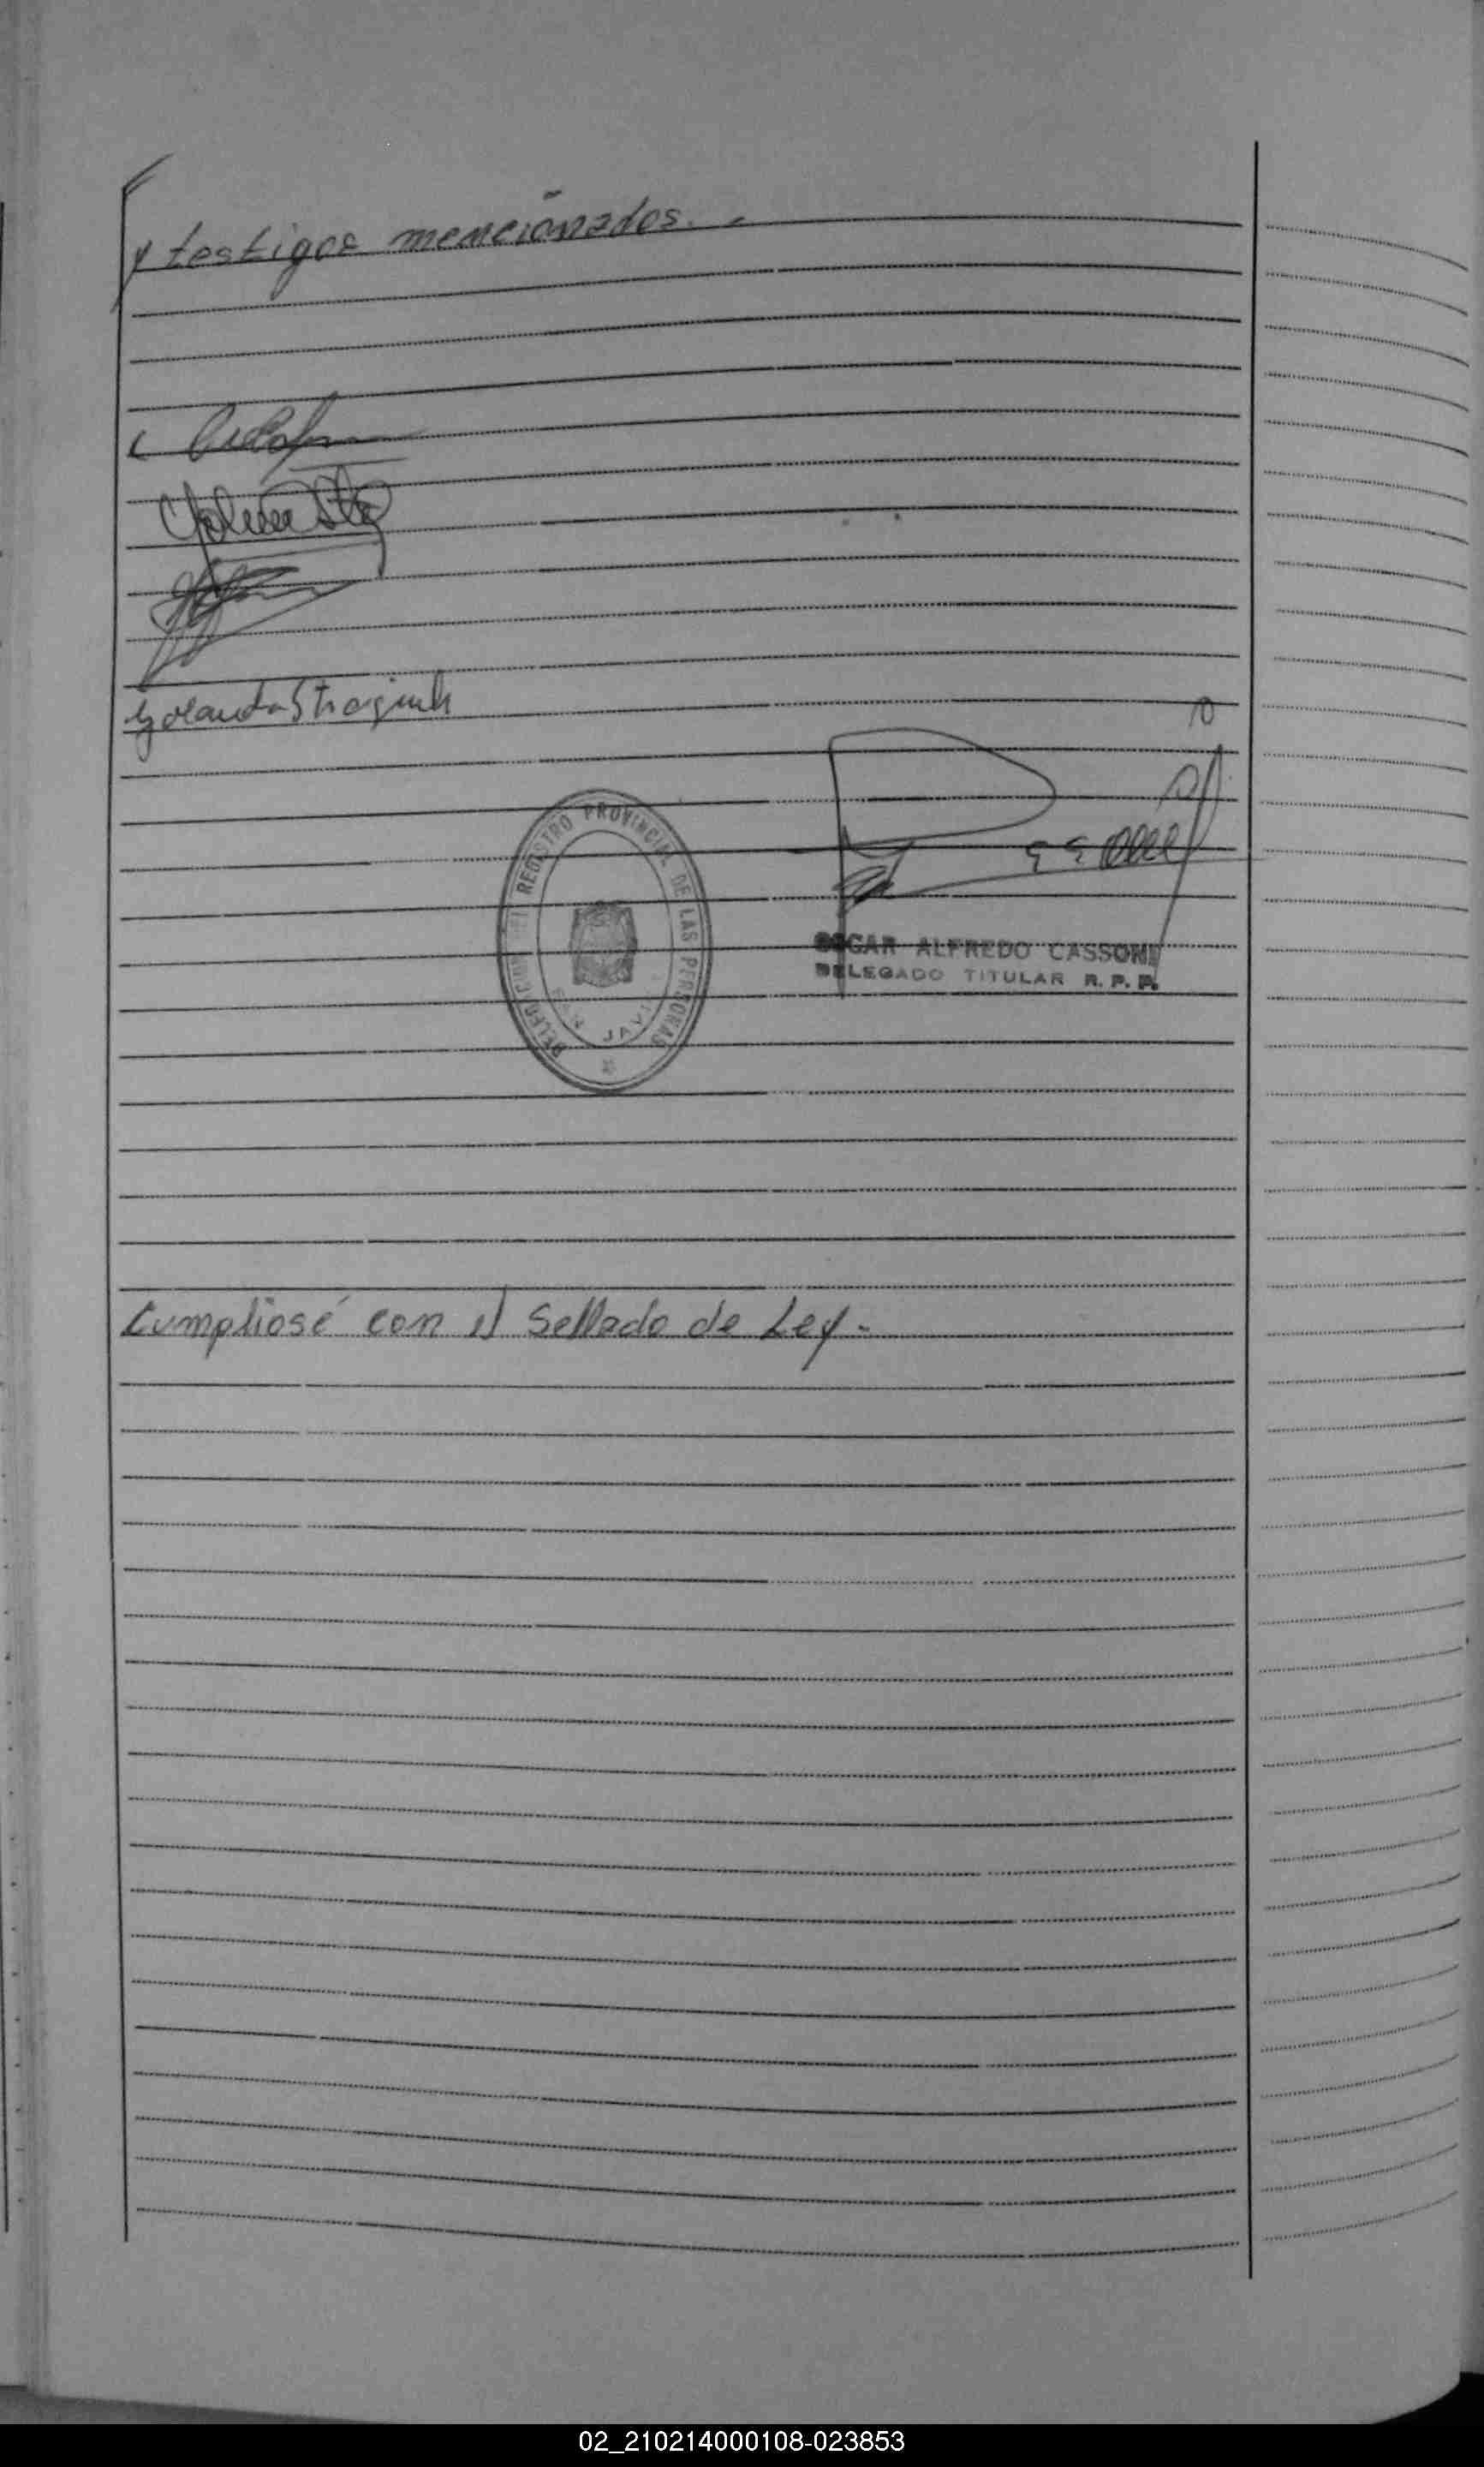 y testigos mencionados.-
Yolanda
REGISTRO PROVINCIAL DE LAS PERSONAS
SAN JAVI
OSCAR ALFREDO CASSONI
DELEGADO TITULAR R. P. P.
Cumpliosé con el Sellado de Ley.-
02_210214000108-023853